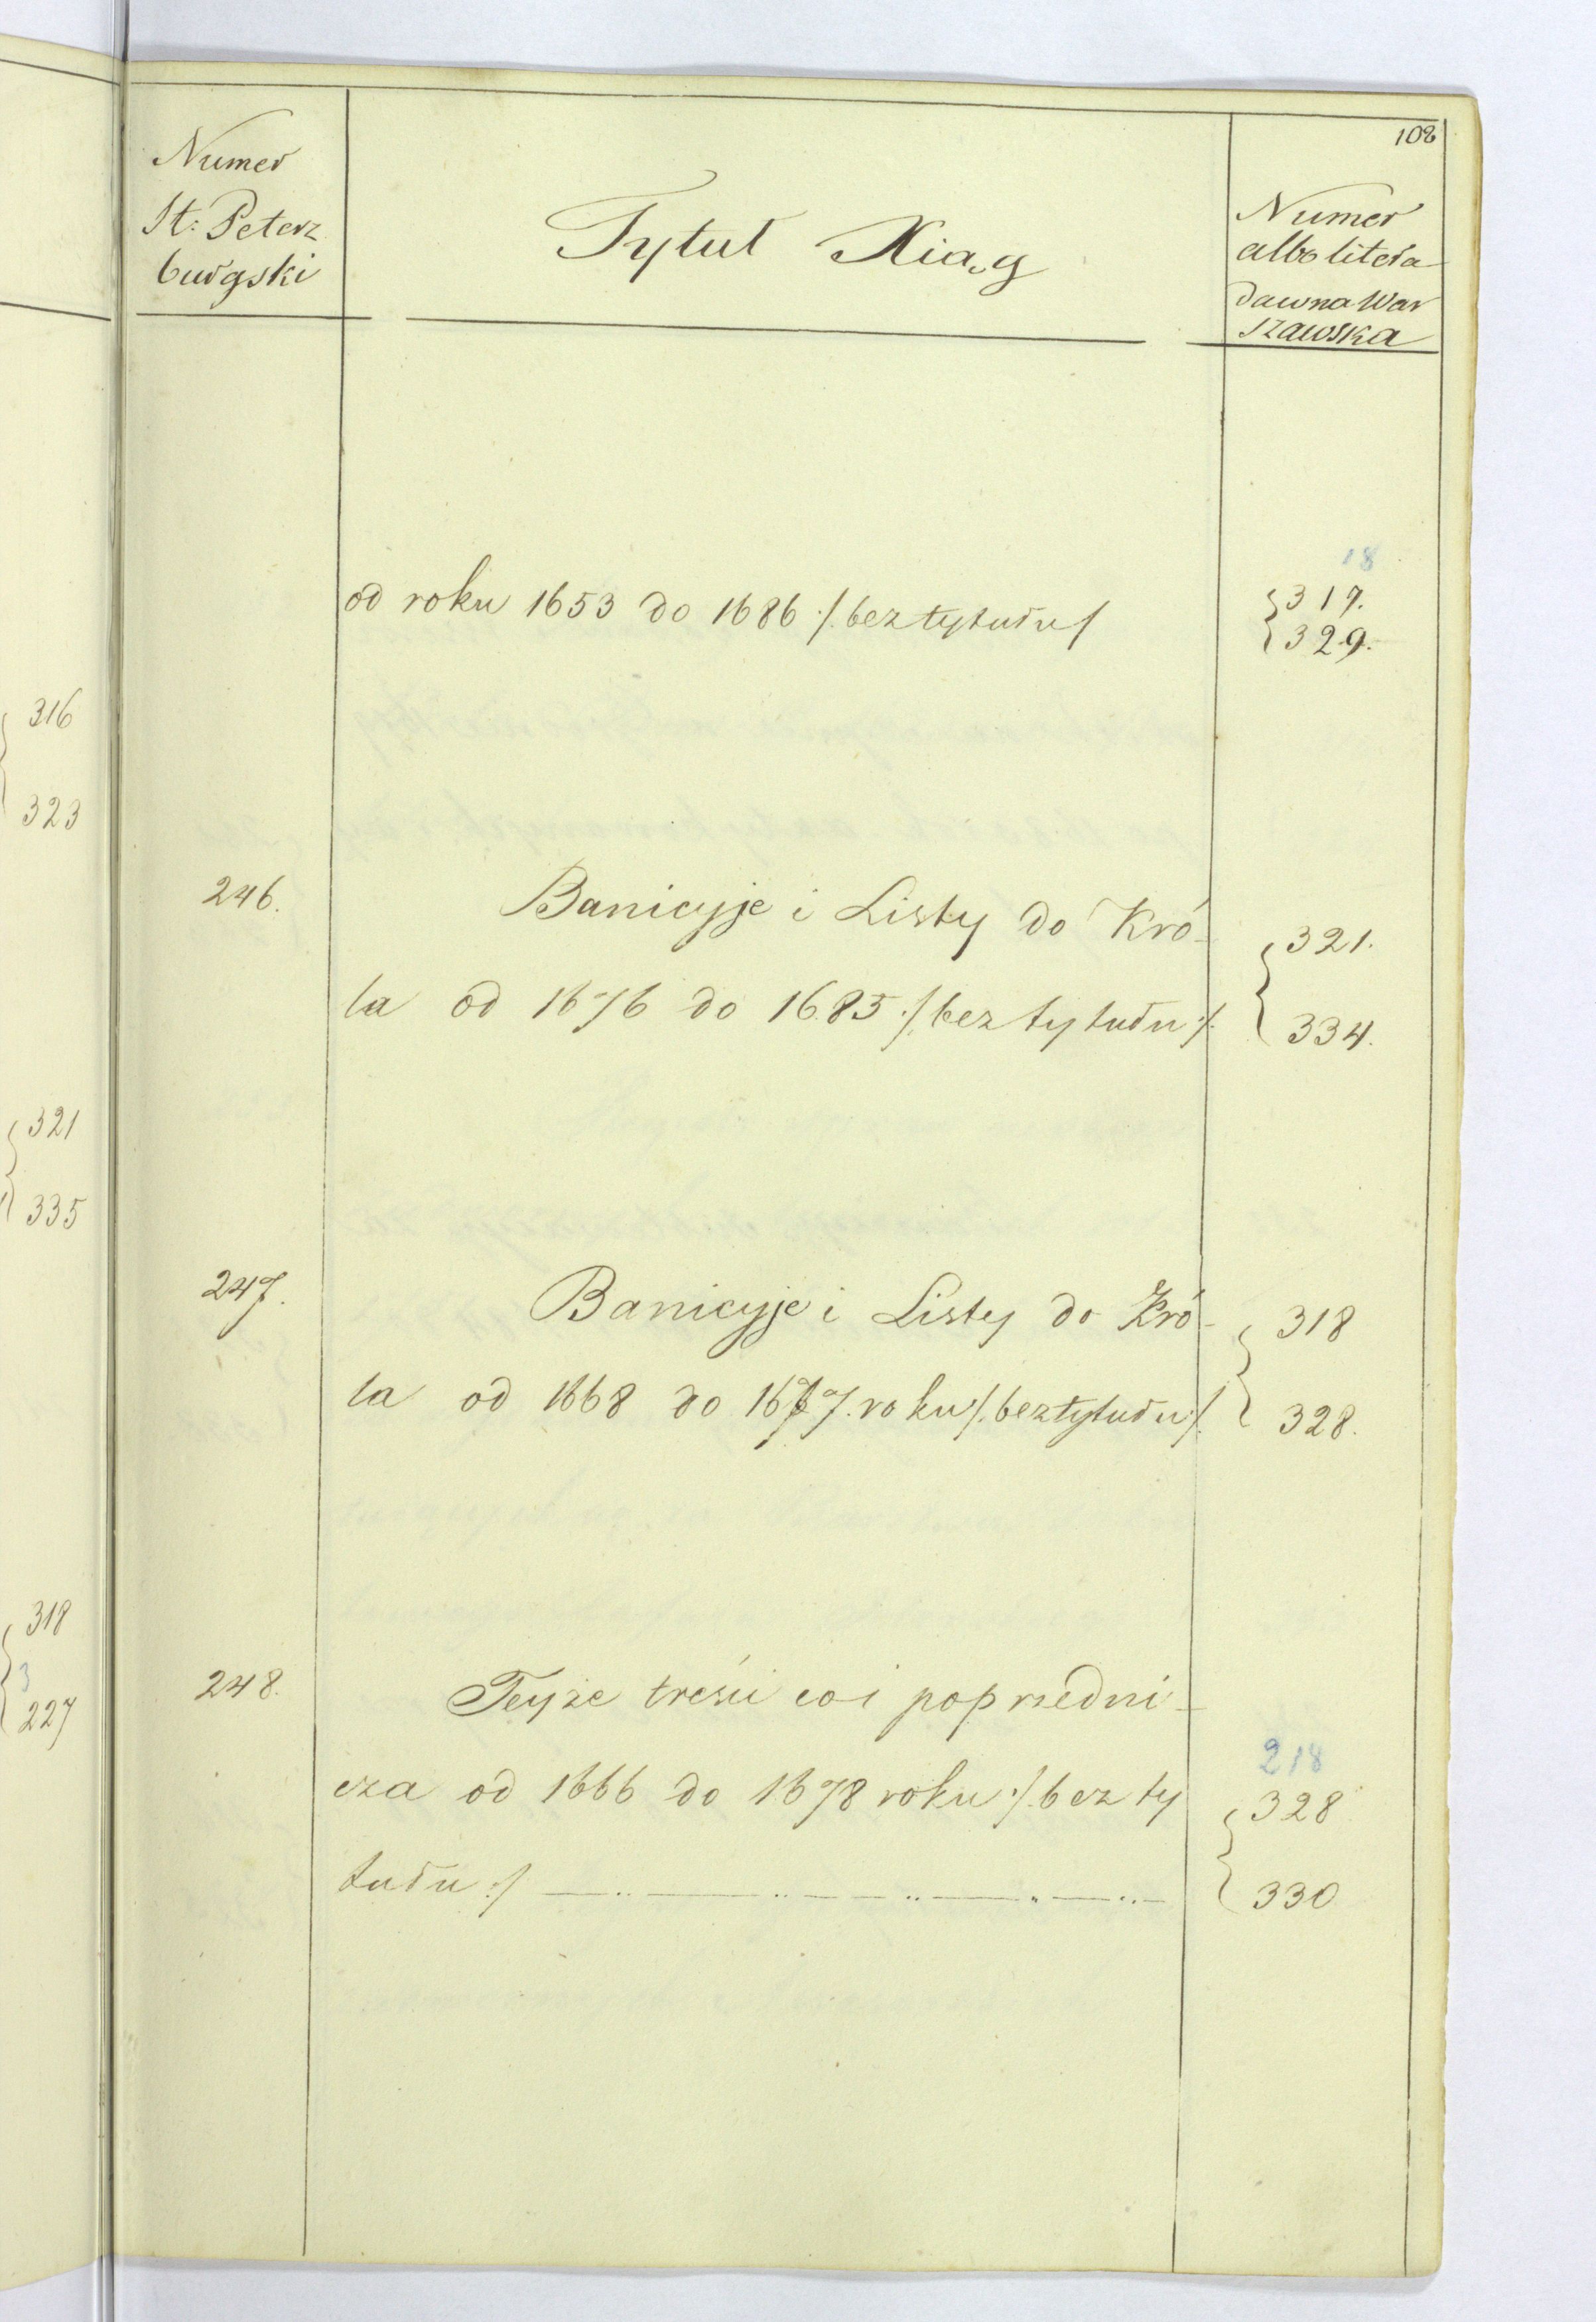 108
Numer
St: Peterz
burgski
Tytuł Xiąg
Numer
albo litera
dawna War
szawska
18
od roku 1653 do 1686 /. bez tytułu /
317.
329.
316
323
246.
Banicyje i Listy do Kró-
321.
la od 1676 do 1685 ./. bez tytułu ./.
334.
321
335
247.
Banicyje i Listy do Kró-
318
la od 1668 do 1677. roku ./. bez tytułu ./.
328.
318
3
227
248.
Teyże treści co i poprzedni-
218
cza od 1666 do 1678 roku ./. bez ty
328
tułu ./
330